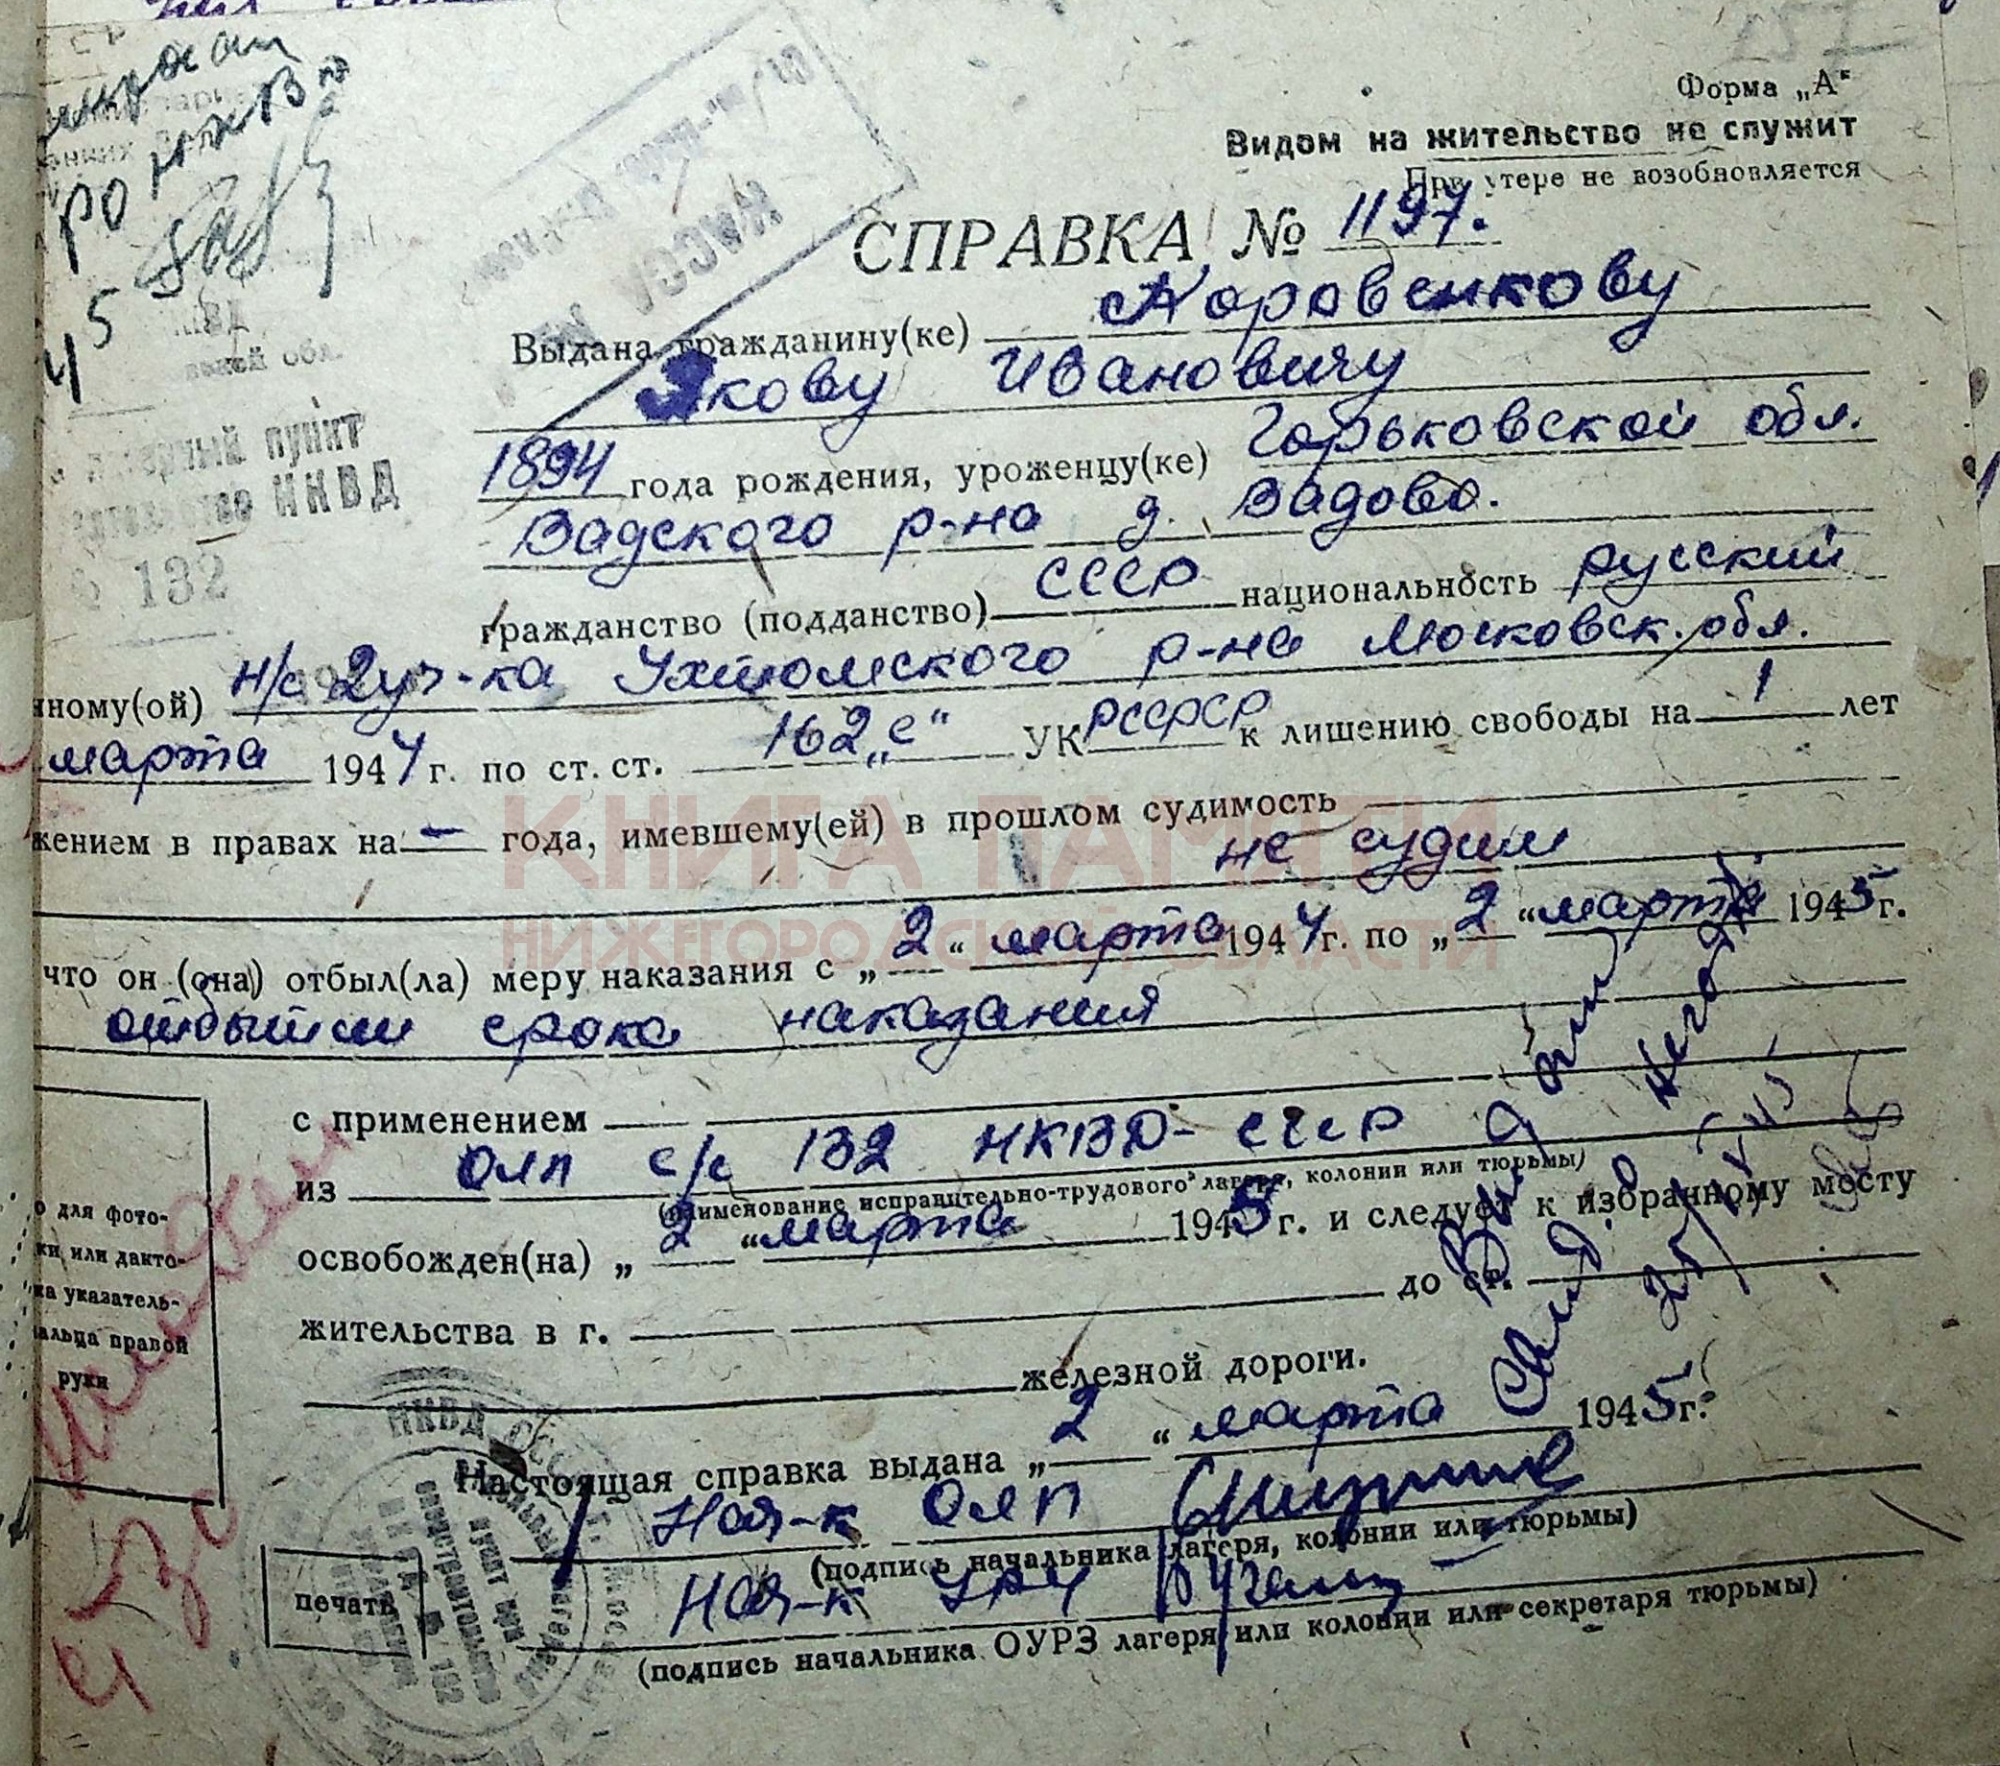 Форма „А"
Видом на жительство не служит
При утере не возобновляется
СПРАВКА № 1197.
Выдана гражданину(ке) Коровенкову
Якову Ивановичу
1894 года рождения, уроженцу(ке) Горьковской обл.
Вадского р-на д. Вадово.
гражданство (подданство) СССР национальность русский
нному(ой) н/с 2 уч-ка Ухтомского р-на Московск. обл.
марта 1944 г. по ст. ст. 162 „с" УК РСФСР к лишению свободы на 1 лет
жением в правах на — года, имевшему(ей) в прошлом судимость
не судим
что он (она) отбыл(ла) меру наказания с „2" марта 1944 г. по „2" марта 1945 г.
отбытии срока наказания
с применением
из ОЛП с/с 132 НКВД-СССР
(наименование исправительно-трудового лагеря, колонии или тюрьмы)
освобожден(на) „2" марта 1945 г. и следует к избранному месту
жительства в г. до ст.
железной дороги.
Настоящая справка выдана „2" марта 1945 г.
Нач-к ОЛП
(подпись начальника лагеря, колонии или тюрьмы)
Нач-к УРЧ
(подпись начальника ОУРЗ лагеря или колонии или секретаря тюрьмы)
о для фото-
ки или дакто-
ка указатель-
альца правой
руки
печать
лагерный пункт
НКВД
132
НКВД СССР
КНИГА ПАМЯТИ
НИЖЕГОРОДСКОЙ ОБЛАСТИ